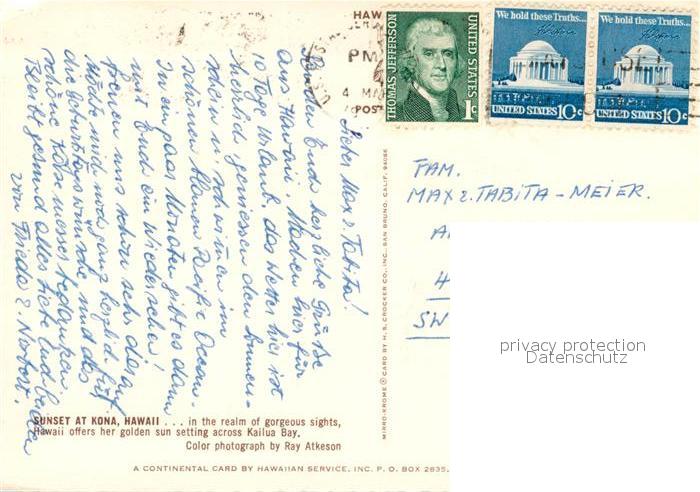 HAW
PM
4 MA
POST
U.S.
THOMAS JEFFERSON
UNITED STATES
1c
We hold these Truths...
UNITED STATES 10c
We hold these Truths...
UNITED STATES 10c
Liebe Max & Tabita!
Senden Euch herzliche Grüsse
aus Hawaii. Machen hier für
10 Tage Urlaub, das Wetter hier ist
herrlich geniessen den Sonnen-
schein u. schwimmen im
schönen blauen Pacific Ocean.
In ein paar Monaten gibt es dann
mit Euch ein Wiedersehen!
freuen uns schon sehr darauf
Möchte mich noch ganz herzlich für
die Geburtstagswünsche und das
schöne bedanken
Bleibt gesund alles liebe Euch beiden
von Frieda & Norbert
FAM.
MAX & TABITA - MEIER.
A
4
SW
MIRRO-KROME ® CARD BY H. S. CROCKER CO., INC., SAN BRUNO, CALIF. 94066
SUNSET AT KONA, HAWAII . . . in the realm of gorgeous sights,
Hawaii offers her golden sun setting across Kailua Bay.
Color photograph by Ray Atkeson
A CONTINENTAL CARD BY HAWAIIAN SERVICE, INC. P. O. BOX 2835,
privacy protection
Datenschutz